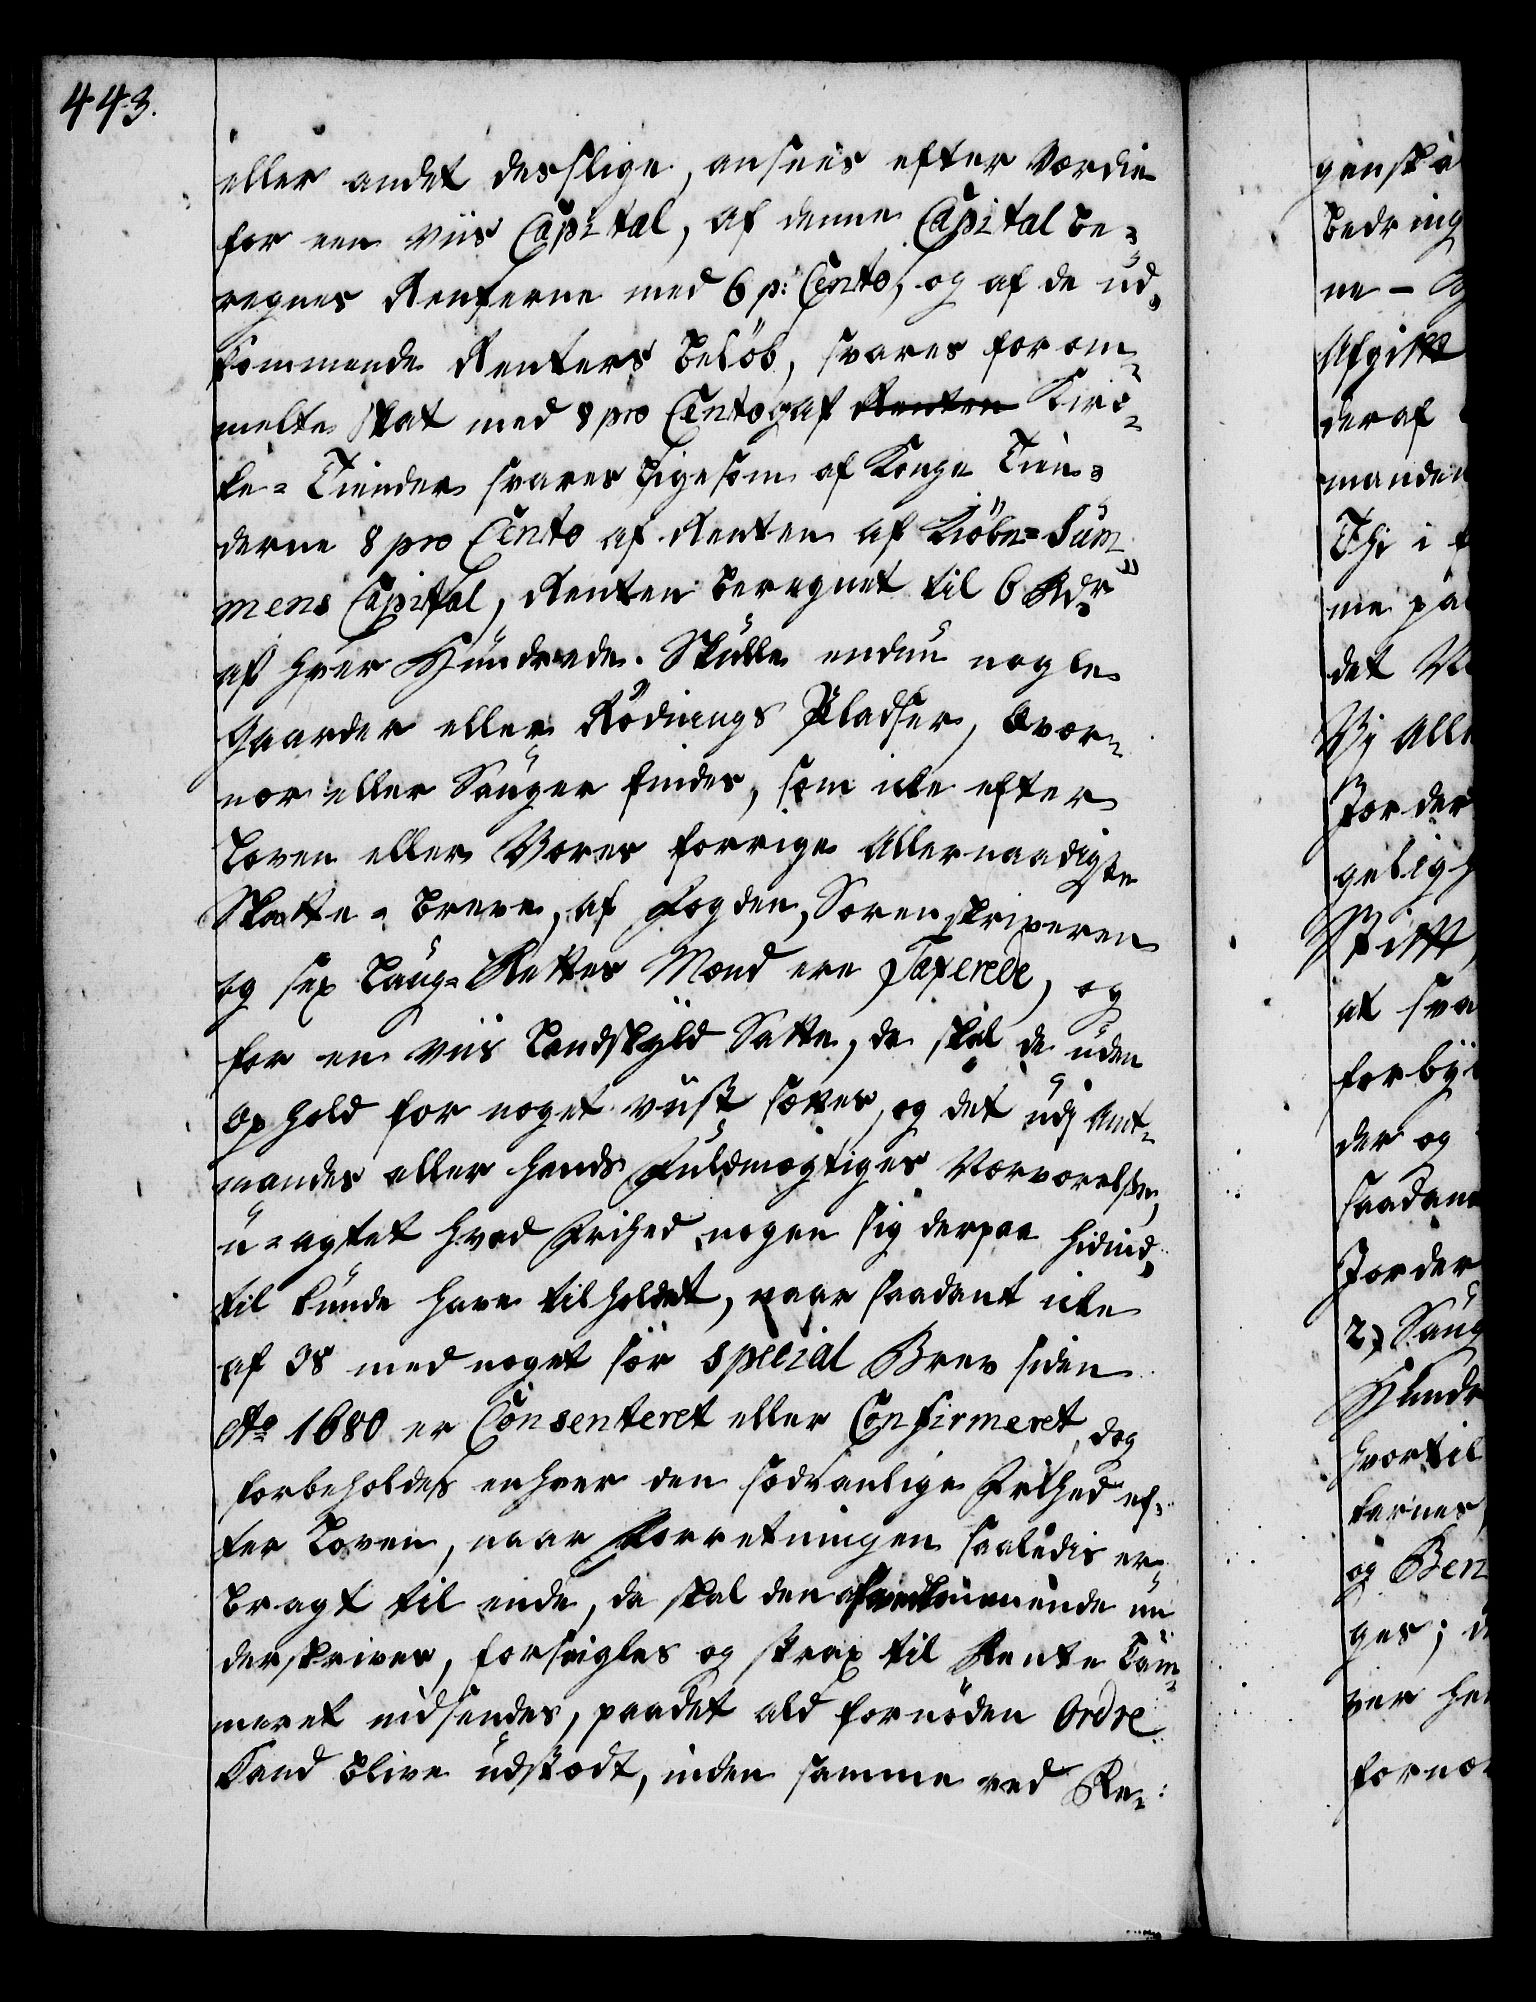 443.
eller andet desslige, ansees efter Værdie
for een viis Capital, af denne Capital be=
regnes Renterne med 6 p: Cento, og af de ud=
kommende Renters beløb, svares forom=
melte skat med 8 pro Cento, af Renten Kir=
ke=Tiender svares ligesom af Konge Tien=
derne 8 pro Cento af Renten af Kiöbe=Sum=
mens Capital, Renten beregnet til 6 Rdr
af hver Hundrede. Skulle endnu nogle
Gaarder eller Rödnings Pladser, Qvær=
ner eller Sauger findes, som icke efter
Loven eller Vores forrige Allernaadigste
Skatte=breve, af Fogden, Sorenskriveren
og sex Laug=Rettes Mænd ere Taxerede, og
for en viis Landskyld Satte, da skal de uden
ophold for noget viist sættes, og det udj Amt=
mandes eller hands Fuldmægtiges Nærværelse,
u=agtet hvad Frihed nogen sig derpaa hidind=
til kunde have tilholdet, naar saadant icke
af OS med noget sær special Brev siden
Ao 1680 er Consenteret eller Confirmeret, dog
forbeholdes enhver den sædvanlige Frihed ef=
ter Loven, naar Forretningen saaledis er
bragt til ende, da skal den af vedkommende un
derskrives, forseigles og strax til Rente Cam=
meret nidsendes, paadet ald fornöden Ordre
Kand blive udstædt, inden samme ved Re=
gensk
bedring
ne -
Afgift
deraf
manden
Thi i
me paa
det
Vj Alle
Jorder
gelig
Stift
at sva
forby
der og
saadan
Jorder
2) Saug
Hundr
hvortil
kernes
og Ben
ges; d
ver he
fornø